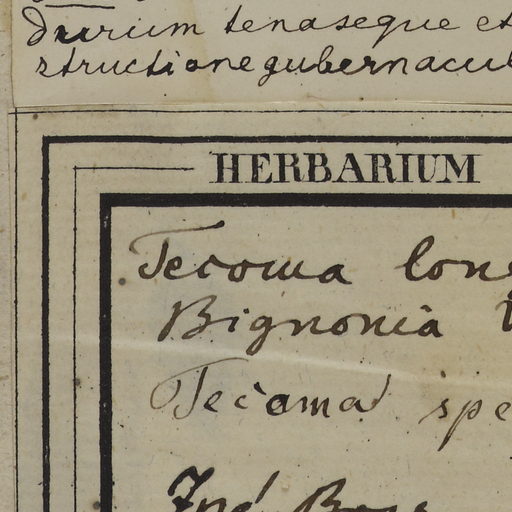 durium tenaseque et
structione gubernacul
HERBARIUM
Tecoma long
Bignonia
Tecoma spe